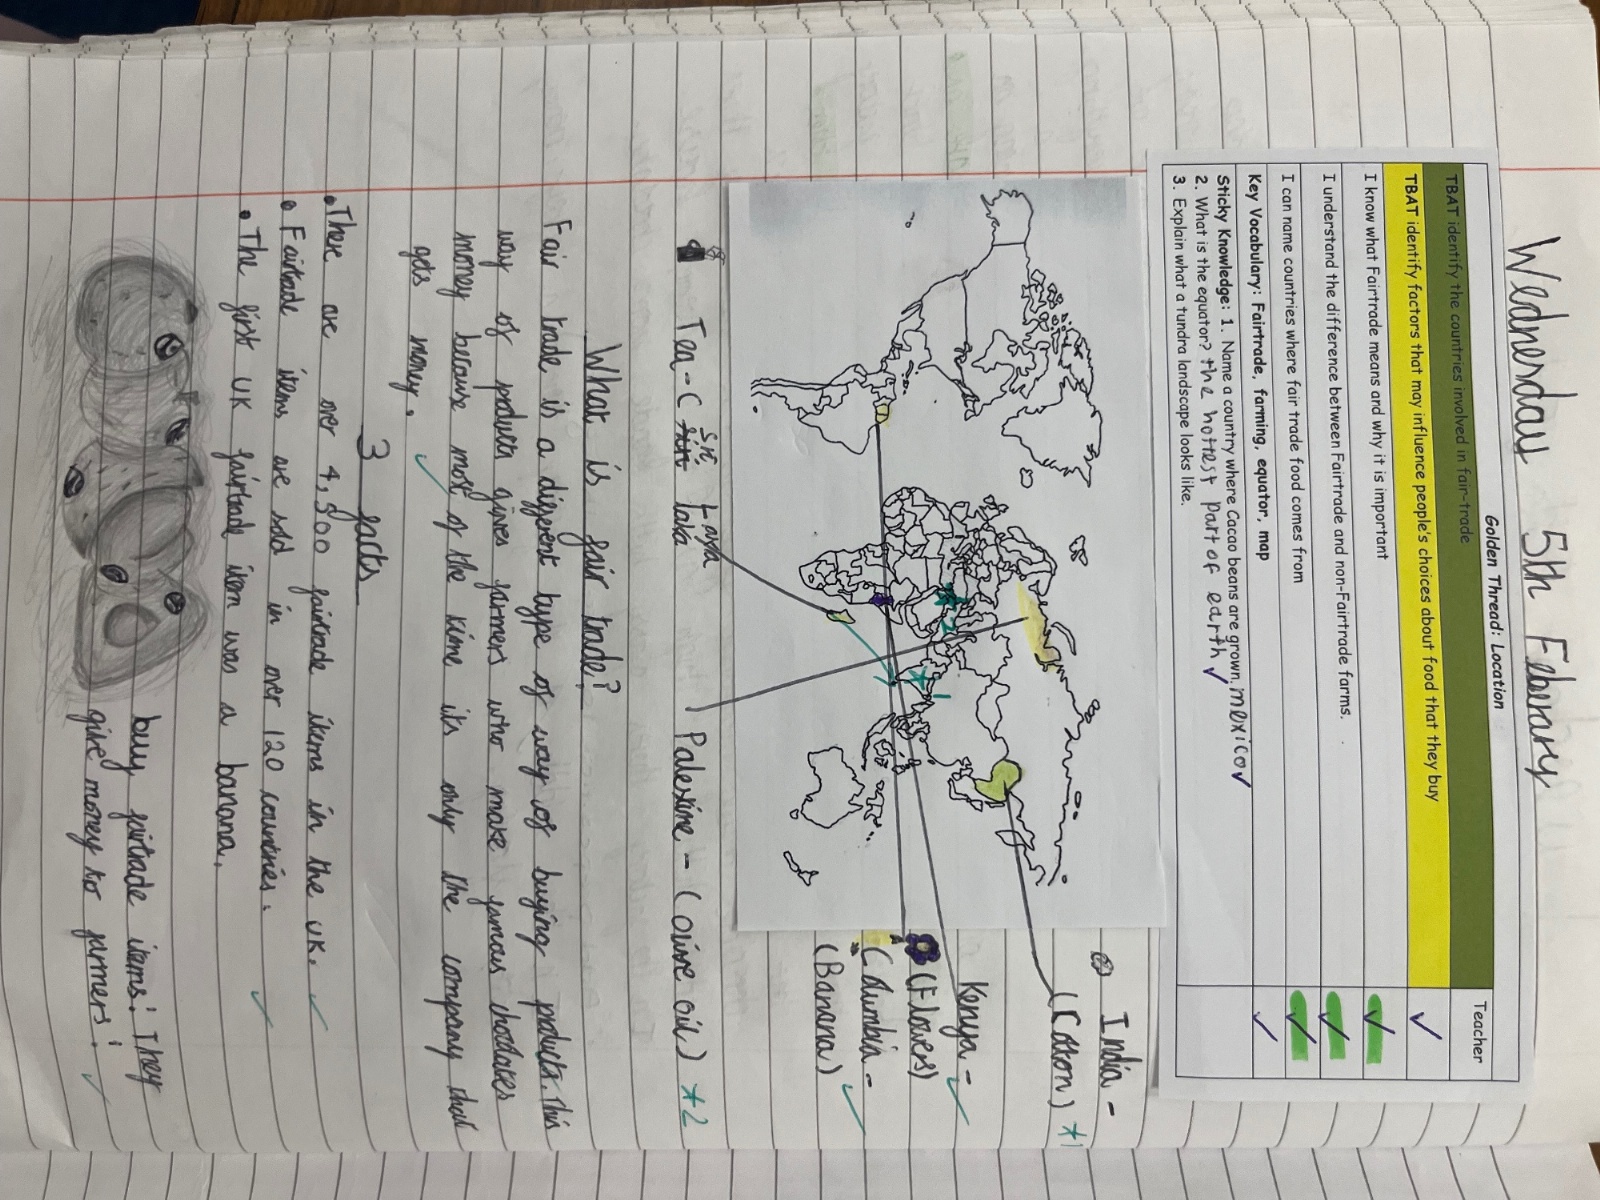 Wednesday 5th Feburary
Golden Thread: Location
Teacher
TBAT identify the countries involved in fair-trade
TBAT identify factors that may influence people's choices about food that they buy
I know what Fairtrade means and why it is important
I understand the difference between Fairtrade and non-Fairtrade farms.
I can name countries where fair trade food comes from
Key Vocabulary: Fairtrade, farming, equator, map
Sticky Knowledge: 1. Name a country where Cacao beans are grown. mexico
2. What is the equator? the hottest part of earth
3. Explain what a tundra landscape looks like.
India -
(Cotton) *1
Kenya -
(Flowers)
(Columbia -
(Banana)
1
2
Tea - ( Sri Layka
laka
Palestine - (Olive oil) *2
What is fair trade?
Fair trade is a diffent type of way of buying products. This
way of products gives farmers who make famous chocolates
money because most of the time its only the company that
gets money.
3 facts
• There are over 4,500 fairtrade items in the UK.
• Fairtrade items are sold in over 120 countries.
• The first UK fairtrade item was a banana.
buy fairtrade items! They
give money to farmers!